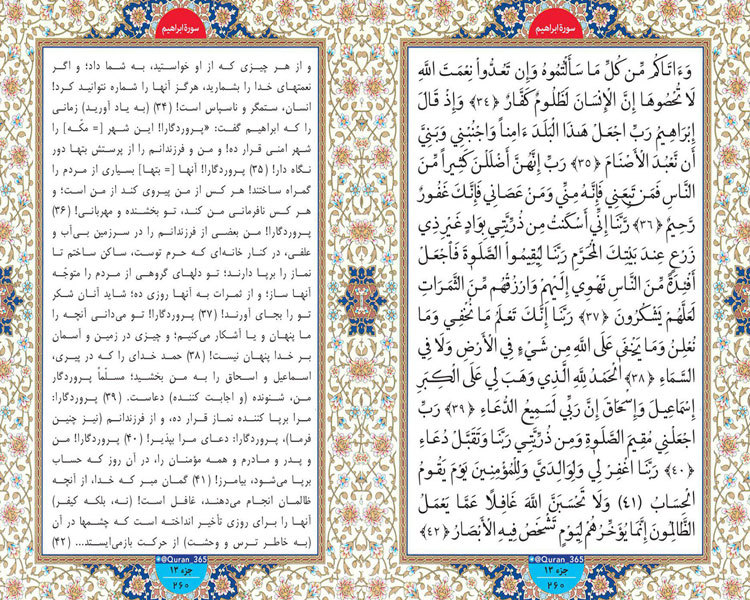 سورة ابراهیم
وَءَاتَاكُم مِّن كُلِّ مَا سَأَلْتُمُوهُ وَإِن تَعُدُّوا نِعْمَتَ اللَّهِ
لَا تُحْصُوهَا إِنَّ الْإِنسَانَ لَظَلُومٌ كَفَّارٌ ﴿٣٤﴾ وَإِذْ قَالَ
إِبْرَاهِيمُ رَبِّ اجْعَلْ هَٰذَا الْبَلَدَ ءَامِنًا وَاجْنُبْنِي وَبَنِيَّ
أَن نَّعْبُدَ الْأَصْنَامَ ﴿٣٥﴾ رَبِّ إِنَّهُنَّ أَضْلَلْنَ كَثِيرًا مِّنَ
النَّاسِ فَمَن تَبِعَنِي فَإِنَّهُ مِنِّي وَمَنْ عَصَانِي فَإِنَّكَ غَفُورٌ
رَّحِيمٌ ﴿٣٦﴾ رَّبَّنَا إِنِّي أَسْكَنتُ مِن ذُرِّيَّتِي بِوَادٍ غَيْرِ ذِي
زَرْعٍ عِندَ بَيْتِكَ الْمُحَرَّمِ رَبَّنَا لِيُقِيمُوا الصَّلَوٰةَ فَاجْعَلْ
أَفْئِدَةً مِّنَ النَّاسِ تَهْوِي إِلَيْهِمْ وَارْزُقْهُم مِّنَ الثَّمَرَاتِ
لَعَلَّهُمْ يَشْكُرُونَ ﴿٣٧﴾ رَبَّنَا إِنَّكَ تَعْلَمُ مَا نُخْفِي وَمَا
نُعْلِنُ وَمَا يَخْفَىٰ عَلَى اللَّهِ مِن شَيْءٍ فِي الْأَرْضِ وَلَا فِي
السَّمَاءِ ﴿٣٨﴾ الْحَمْدُ لِلَّهِ الَّذِي وَهَبَ لِي عَلَى الْكِبَرِ
إِسْمَاعِيلَ وَإِسْحَاقَ إِنَّ رَبِّي لَسَمِيعُ الدُّعَاءِ ﴿٣٩﴾ رَبِّ
اجْعَلْنِي مُقِيمَ الصَّلَوٰةِ وَمِن ذُرِّيَّتِي رَبَّنَا وَتَقَبَّلْ دُعَاءِ
﴿٤٠﴾ رَبَّنَا اغْفِرْ لِي وَلِوَالِدَيَّ وَلِلْمُؤْمِنِينَ يَوْمَ يَقُومُ
الْحِسَابُ ﴿٤١﴾ وَلَا تَحْسَبَنَّ اللَّهَ غَافِلًا عَمَّا يَعْمَلُ
الظَّالِمُونَ إِنَّمَا يُؤَخِّرُهُمْ لِيَوْمٍ تَشْخَصُ فِيهِ الْأَبْصَارُ ﴿٤٢﴾
@Quran_365
جزء ۱۳
۲۶۰
سورة ابراهیم
و از هر چیزی که از او خواستید، به شما داد؛ و اگر
نعمتهای خدا را بشمارید، هرگز آنها را شماره نتوانید کرد!
انسان، ستمگر و ناسپاس است! (۳۴) (به یاد آورید) زمانی
را که ابراهیم گفت: «پروردگارا! این شهر [= مکّه] را
شهر امنی قرار ده! و من و فرزندانم را از پرستش بتها دور
نگاه دار! (۳۵) پروردگارا! آنها [= بتها] بسیاری از مردم را
گمراه ساختند! هر کس از من پیروی کند از من است؛ و
هر کس نافرمانی من کند، تو بخشنده و مهربانی! (۳۶)
پروردگارا! من بعضی از فرزندانم را در سرزمین بی‌آب و
علفی، در کنار خانه‌ای که حرم توست، ساکن ساختم تا
نماز را برپا دارند؛ تو دلهای گروهی از مردم را متوجّه
آنها ساز؛ و از ثمرات به آنها روزی ده؛ شاید آنان شکر
تو را بجای آورند! (۳۷) پروردگارا! تو می‌دانی آنچه را
ما پنهان و یا آشکار می‌کنیم؛ و چیزی در زمین و آسمان
بر خدا پنهان نیست! (۳۸) حمد خدای را که در پیری،
اسماعیل و اسحاق را به من بخشید؛ مسلّماً پروردگار
من، شنونده (و اجابت کننده) دعاست. (۳۹) پروردگارا:
مرا برپا کننده نماز قرار ده، و از فرزندانم (نیز چنین
فرما)، پروردگارا: دعای مرا بپذیر! (۴۰) پروردگارا! من
و پدر و مادرم و همه مؤمنان را، در آن روز که حساب
برپا می‌شود، بیامرز! (۴۱) گمان مبر که خدا، از آنچه
ظالمان انجام می‌دهند، غافل است! (نه، بلکه کیفر)
آنها را برای روزی تأخیر انداخته است که چشمها در آن
(به خاطر ترس و وحشت) از حرکت بازمی‌ایستد... (۴۲)
@Quran_365
جزء ۱۳
۲۶۰